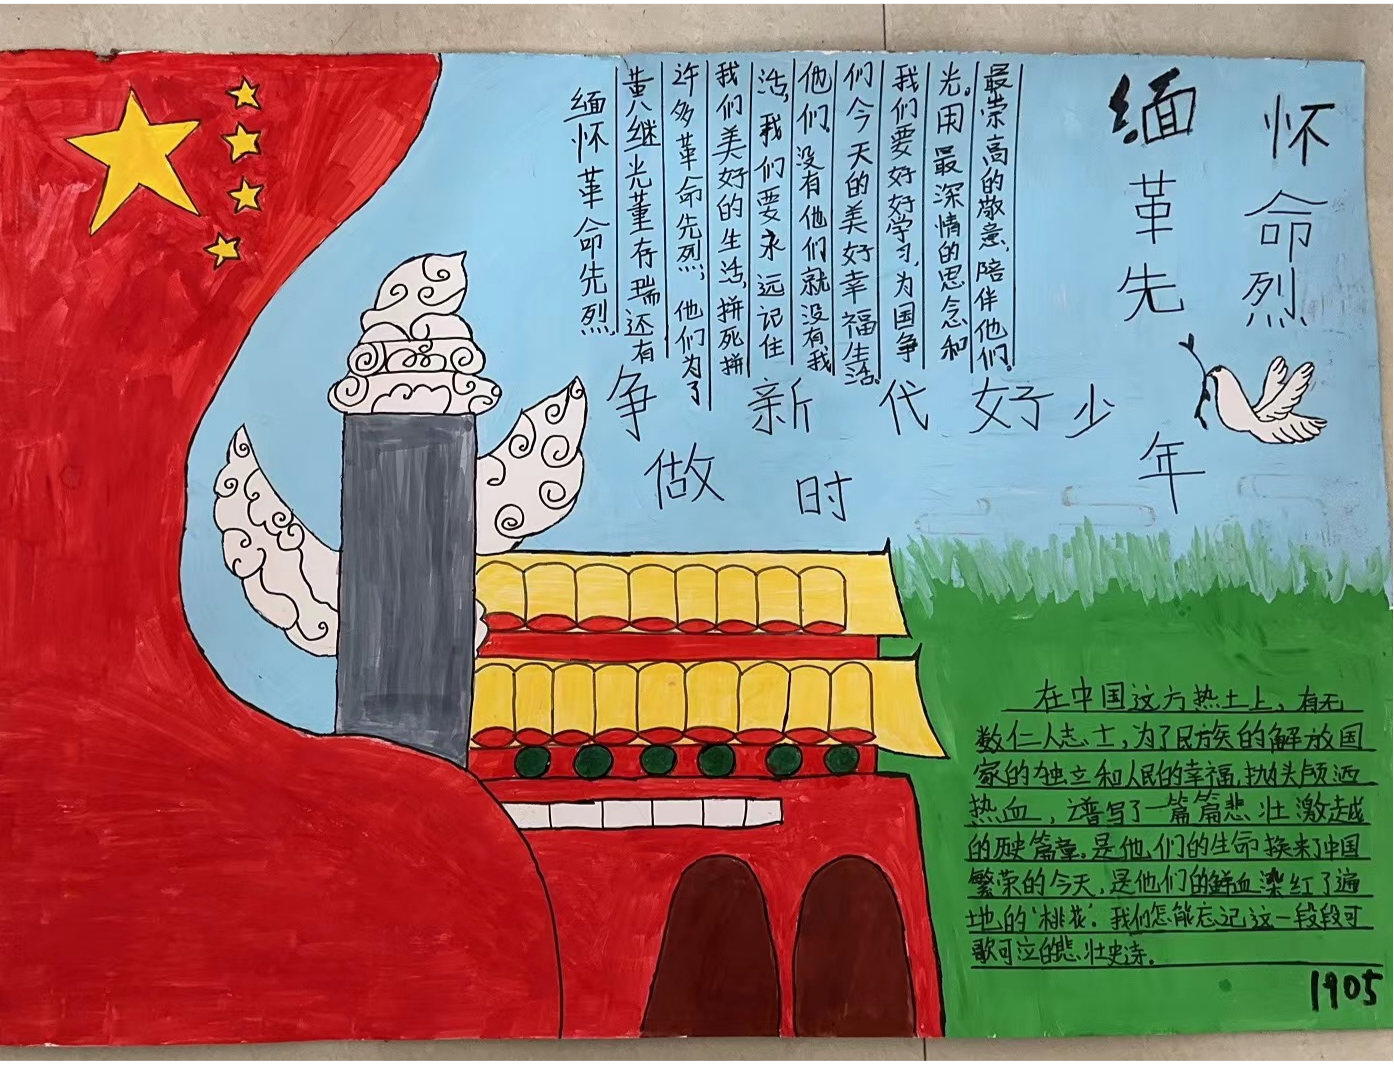 缅怀
革命
先烈
缅怀革命先烈
黄继光董存瑞还有
许多革命先烈，他们为了
我们美好的生活，拼死拼
活，我们要永远记住
他们。没有他们就没有我
们今天的美好幸福生活。
我们要好好学习，为国争
光。用最深情的思念和
最崇高的敬意，陪伴他们。
争做新时代好少年
在中国这方热土上，有无
数仁人志士，为了民族的解放国
家的独立和人民的幸福，抛头颅洒
热血，谱写了一篇篇悲壮激越
的历史篇章。是他们的生命换来了中国
繁荣的今天，是他们的鲜血染红了遍
地的‘桃花’。我们怎能忘记这一段段可
歌可泣的悲壮史诗。
1905